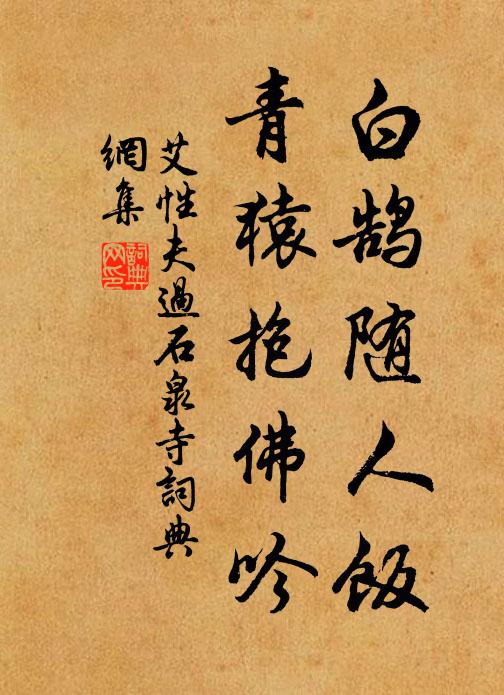 白鹄随人飯
青猿抱佛吟
艾性夫過石泉寺詞典
網集
詞典
网印